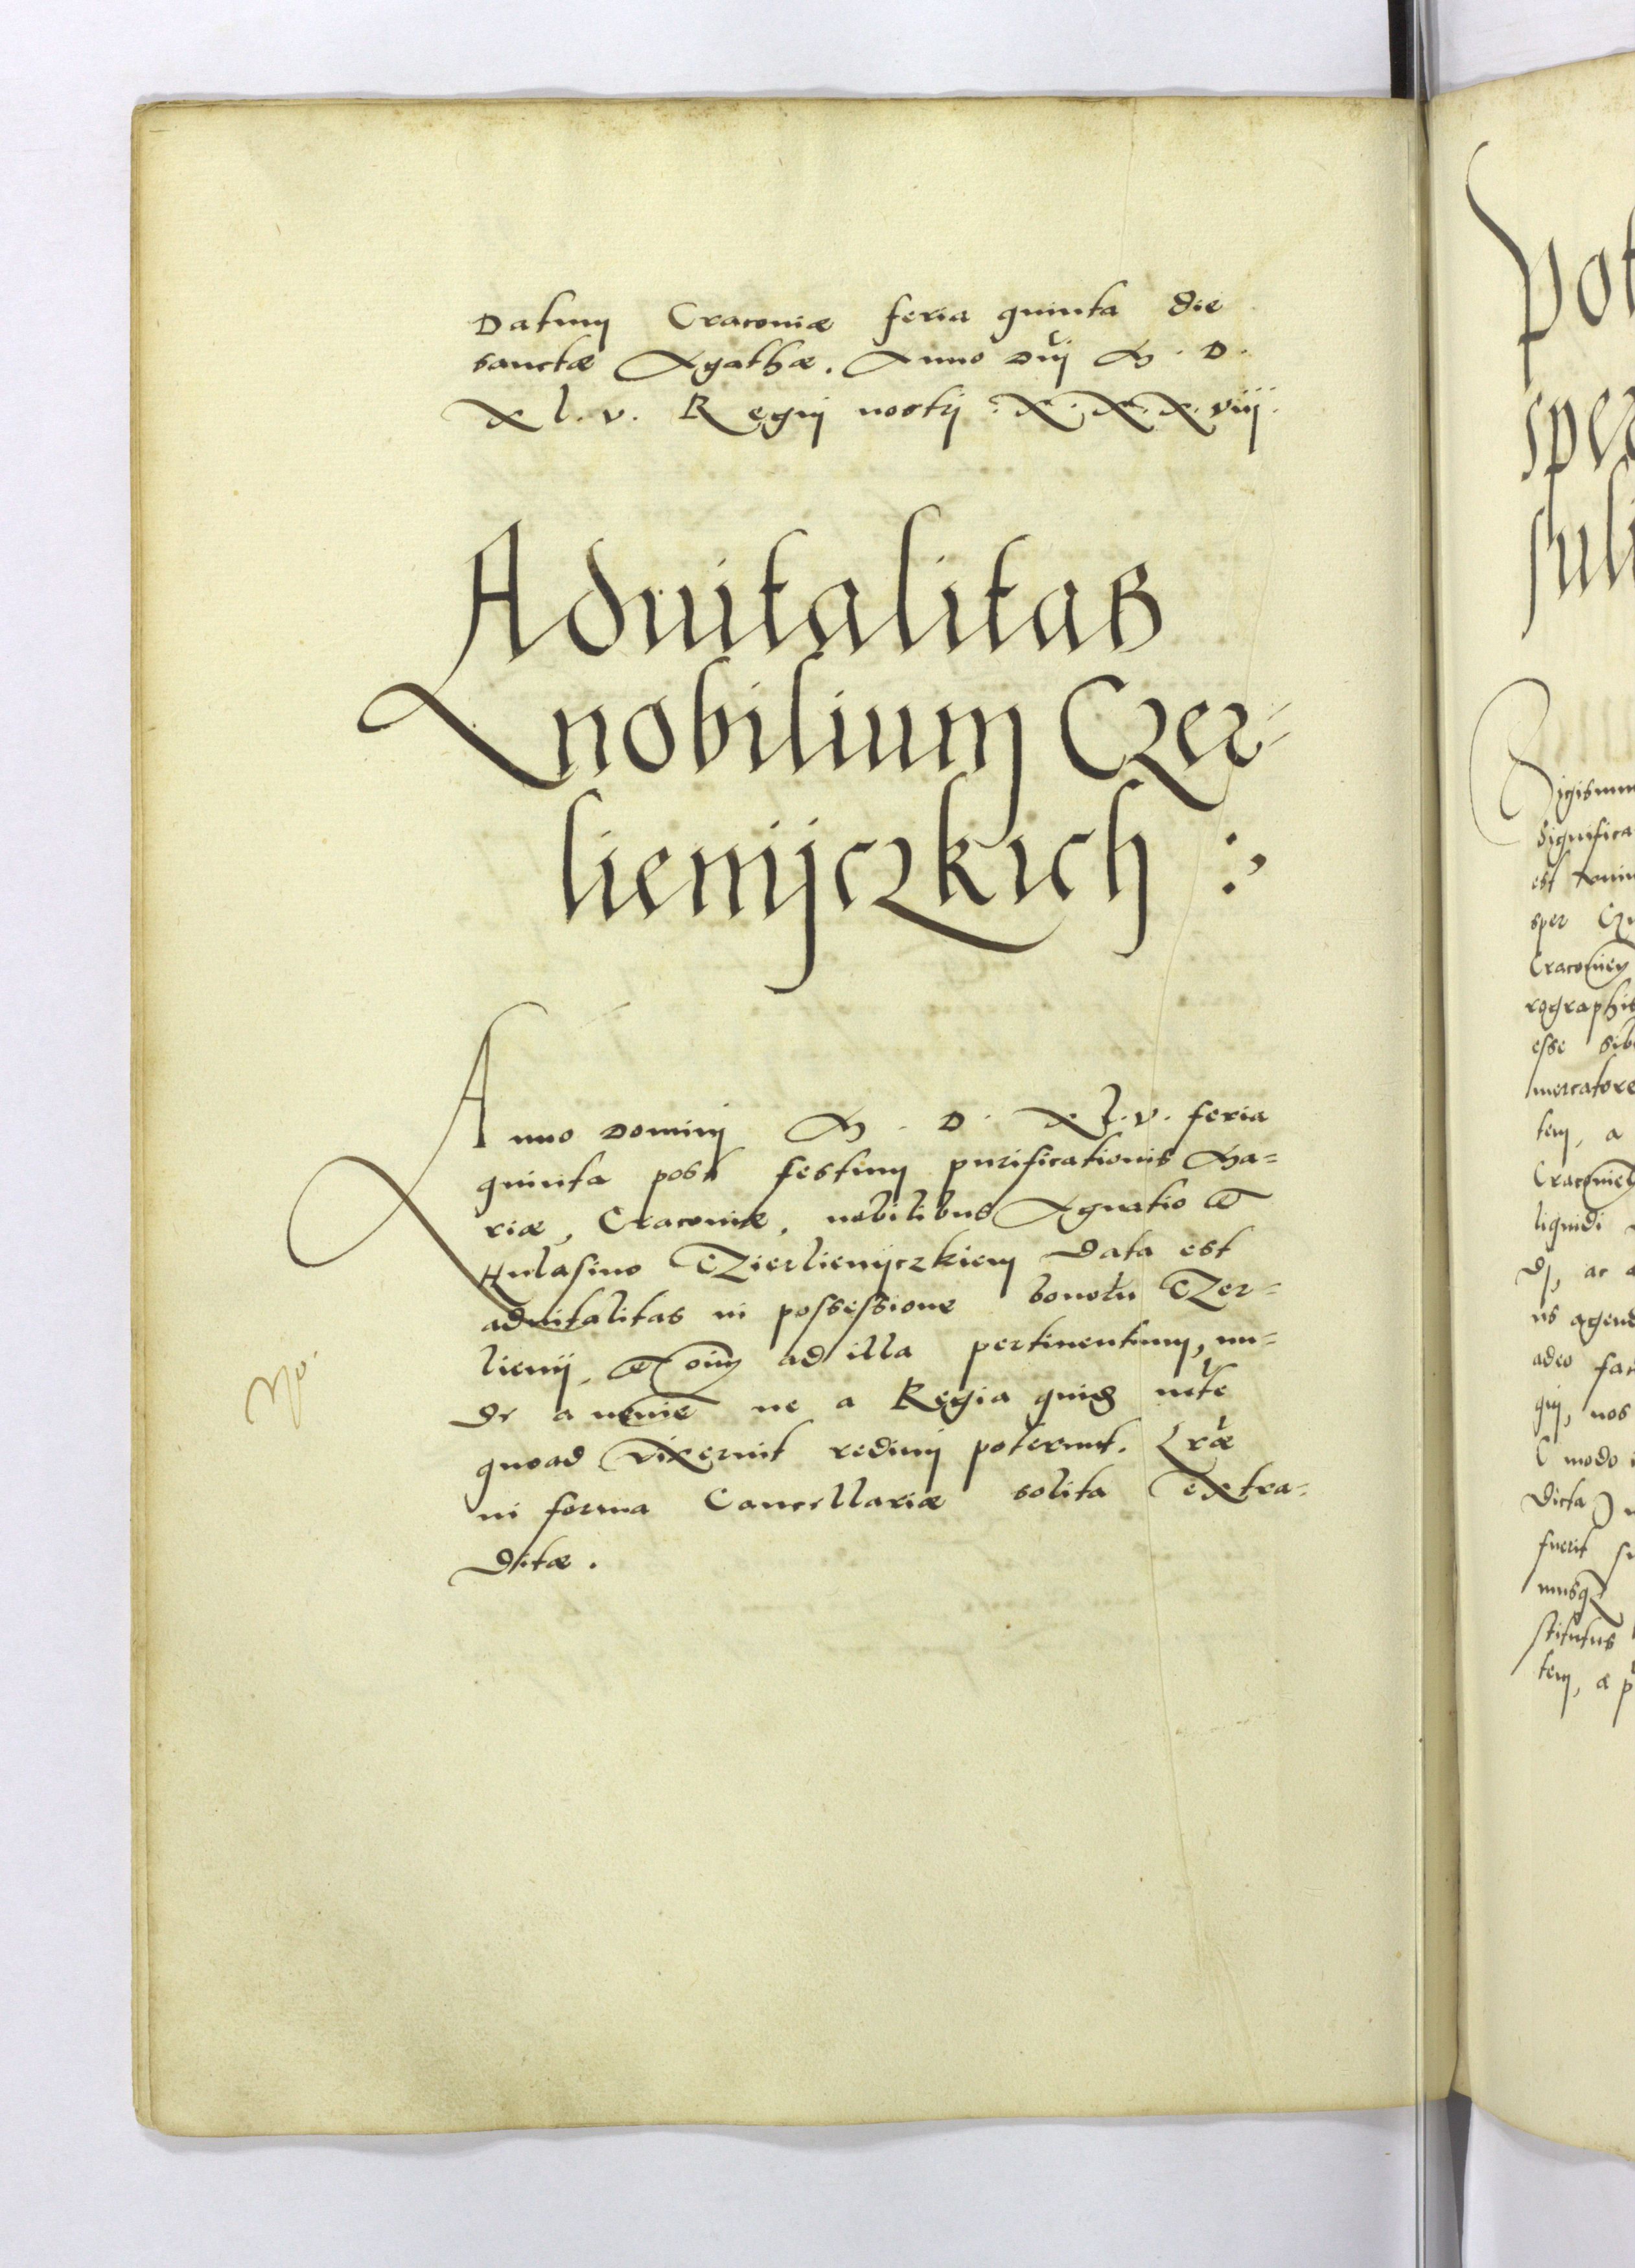 Datum Cracoviæ feria quinta die
sanctæ Agathæ. Anno Dni M. D.
Xl. v. Regni nostri. X. X. X. viij.
Aduitalitas
nobilium Czer-
lieniijczkich :,
Anno Domini M. D. Xl. v. feria
quinta post festum purificationis Ma=
riæ, Cracoviæ, nobilibus Agnatio et
Hulasino Czierlienijczkiem data est
aduitalitas in possessione bonoru Czer=
lienij, et oium ad illa pertinentium, un=
de a nemie ne a Regia quidem mte
quoad vixerint redimi poterunt. Lræ
in forma Cancellariæ solita extra=
ditæ.
Pot
sper
suli
Sigismun
Significa
est
sper
Cracovien
rographis
esse sib
mercatore
tem, a
Cracovien
liquidi
dj, ac a
us agend
adeo fat
gij, nos
modo
dicta
fuerit
musq
stitutus
tem, a p